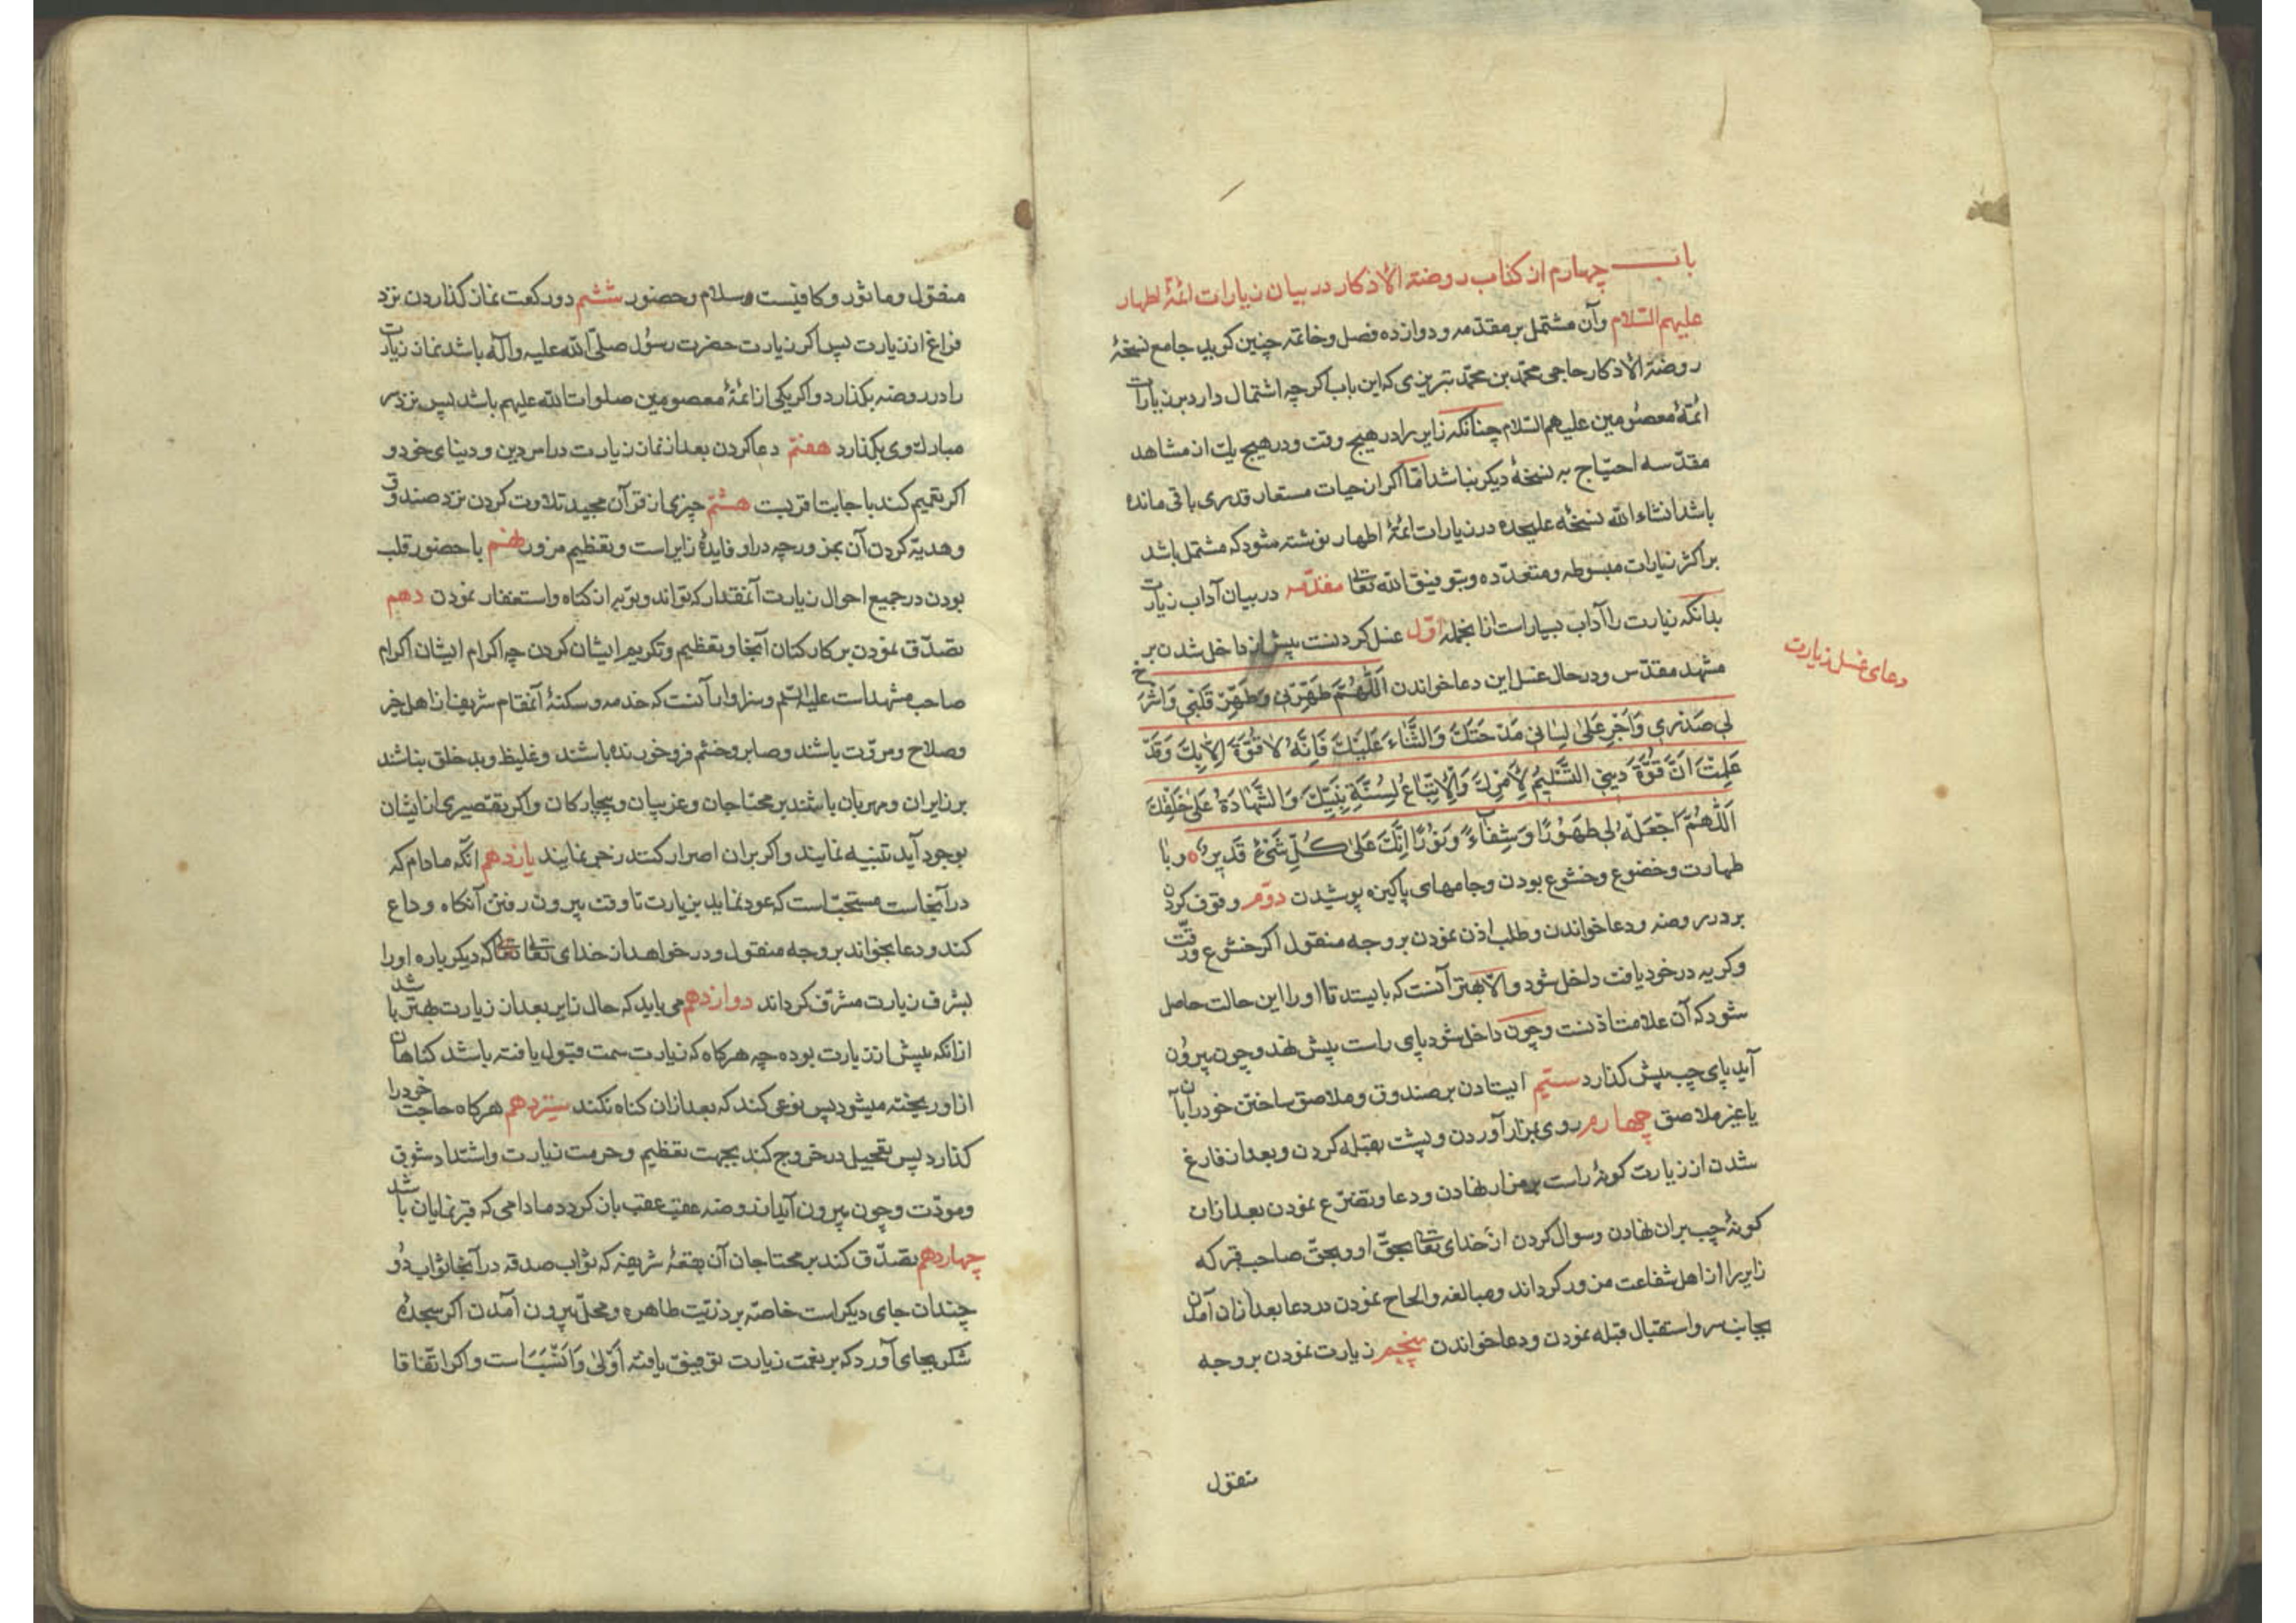 باب چهارم از کتاب روضة الأذکار در بیان زیارات ائمّهٔ اطهار
علیهم السّلام وآن مشتمل بر مقدّمه و دوازده فصل و خاتمه چنین کوید جامع نسخهٔ
روضة الأذکار حاجی محمّد بن محمّد تبریزی که این باب اکرچه اشتمال دارد بر زیارات
ائمّهٔ معصومین علیهم السّلام چنانکه زایر را در هیچ وقت و در هیچ یک از مشاهد
مقدّسه احتیاج به نسخهٔ دیکر نباشد امّا اکر از حیات مستعار قدری باقی مانده
باشد انشاء الله نسخهٔ علیحده در زیارات ائمّهٔ اطهار نوشته شود که مشتمل باشد
بر اکثر زیارات مبسوطه و متعدّده و بتوفیق الله تعالی مقدّمه در بیان آداب زیارت
بدانکه زیارت را آداب بسیار است از انجمله اوّل غسل کردنست پیش از داخل شدن بر
مشهد مقدّس و در حال غسل این دعا خواندن اَللّهُمَّ طَهِّرْنی وَطَهِّرْ قَلْبی وَاشْرَح
لی صَدْری وَاَجْرِ عَلیٰ لِسٰانی مَدْحَتَکَ وَالثَّنٰاءَ عَلَیْکَ فَاِنَّهُ لاٰ قُوَّةَ اِلاّٰ بِکَ وَقَدْ
عَلِمْتُ اَنَّ قُوَّةَ دینی التَّسْلیمُ لِأَمْرِکَ وَالْاِتِّبٰاعُ لِسُنَّةِ نَبِیِّکَ وَالشَّهٰادَةُ عَلیٰ خَلْقِکَ
اَللّٰهُمَّ اجْعَلْهُ لی طَهُورًا وَشِفٰاءً وَنُورًا اِنَّکَ عَلیٰ کُلِّ شَیْءٍ قَدیرٌ ه و با
طهارت و خضوع و خشوع بودن و جامهای پاکیزه پوشیدن دوّم وقوف کردن
بر در روضه و دعا خواندن و طلب اذن نمودن بر وجه منقول اکر خشوع و رقّت
و کریه در خود یافت داخل شود و الّا بهتر آنست که بایستد تا او را این حالت حاصل
شود که آن علامت اذنست و چون داخل شود پای راست پیش نهد و چون بیرون
آید پای چپ پیش کذارد سیّم ایستادن بر صندوق و ملاصق ساختن خود را بآن
یا غیر ملاصق چهارم روی بمزار آوردن و پشت بقبله کردن و بعد از فارغ
شدن از زیارت کونهٔ راست بر مزار نهادن و دعا و تضرّع نمودن بعد از آن
کونهٔ چپ بر آن نهادن و سوال کردن از خدای تعالی بحقّ او و بحقّ صاحب قبر که
زایر را از اهل شفاعت مزور کرداند و مبالغه و الحاح نمودن در دعا بعد از آن آمدن
بجانب سر و استقبال قبله نمودن و دعا خواندن پنجم زیارت نمودن بر وجه
منقول
دعای غسل زیارت
منقول و ماثور و کافیست سلام و حضور ششم دو رکعت نماز کذاردن نزد
فراغ از زیارت پس اکر زیارت حضرت رسُول صلّی الله علیه وآله باشد نماز زیارت
را در روضه بکذارد و اکر یکی از ائمّهٔ معصومین صلوات الله علیهم باشد پس نزد سر
مبارک وی بکذارد هفتم دعا کردن بعد از نماز زیارت در امر دین و دنیای خود و
اکر تعمیم کند باجابت اقربست هشتم چیزی از قرآن مجید تلاوت کردن نزد صندوق
و هدیّه کردن آن بمزور چه در او فایدهٔ زایر است و تعظیم مزور نهم با حضور قلب
بودن در جمیع احوال زیارت آنمقدار که تواند و توبه از کناه و استغفار نمودن دهم
تصدّق نمودن بر کارکنان آنجا و تعظیم و تکریم ایشان کردن چه اکرام ایشان اکرام
صاحب مشهد است علیه السّلم و سزاوار آنست که خدمه و سکنهٔ آنمقام شریف از اهل خیر
و صلاح و مروّت باشند و صابر و خشم فرو خورنده باشند و غلیظ و بد خلق نباشند
بر زایران و مهربان باشند بر محتاجان و غریبان و بیچارکان و اکر تقصیری از ایشان
بوجود آید تنبیه نمایند و اکر بر آن اصرار کنند زجر نمایند یازدهم انکه مادام که
در آنجاست مستحبّ است که عود نماید بزیارت تا وقت بیرون رفتن آنکاه وداع
کند و دعا بخواند بر وجه منقول و درخواهد از خدای تعالی تعالی که دیکر باره او را
بشرف زیارت مشرّف کرداند دوازدهم می باید که حال زایر بعد از زیارت بهتر باشد
از انکه پیش از زیارت بوده چه هرکاه که زیارت سمت قبول یافته باشد کناهان
از او ریخته میشود پس نوعی کند که بعد از ان کناه نکند سیزدهم هرکاه حاجت خود را
کذارد پس تعجیل در خروج کند بجهت تعظیم و حرمت زیارت و اشتداد شوق
و مودّت و چون بیرون آید از روضه عقب عقب باز کردد مادامی که قبر نمایان باشد
چهاردهم تصدّق کند بر محتاجان آن بقعهٔ شریفه که ثواب صدقه در آنجا ثواب دُو
چندان جای دیکر است خاصّه بر ذرّیّت طاهره و محلّ بیرون آمدن اکر سجدهٔ
شکر بجای آورد که بر نعمت زیارت توفیق یافته اَوْلیٰ وَاَنْسَبَ است و اکر اتّفاقا